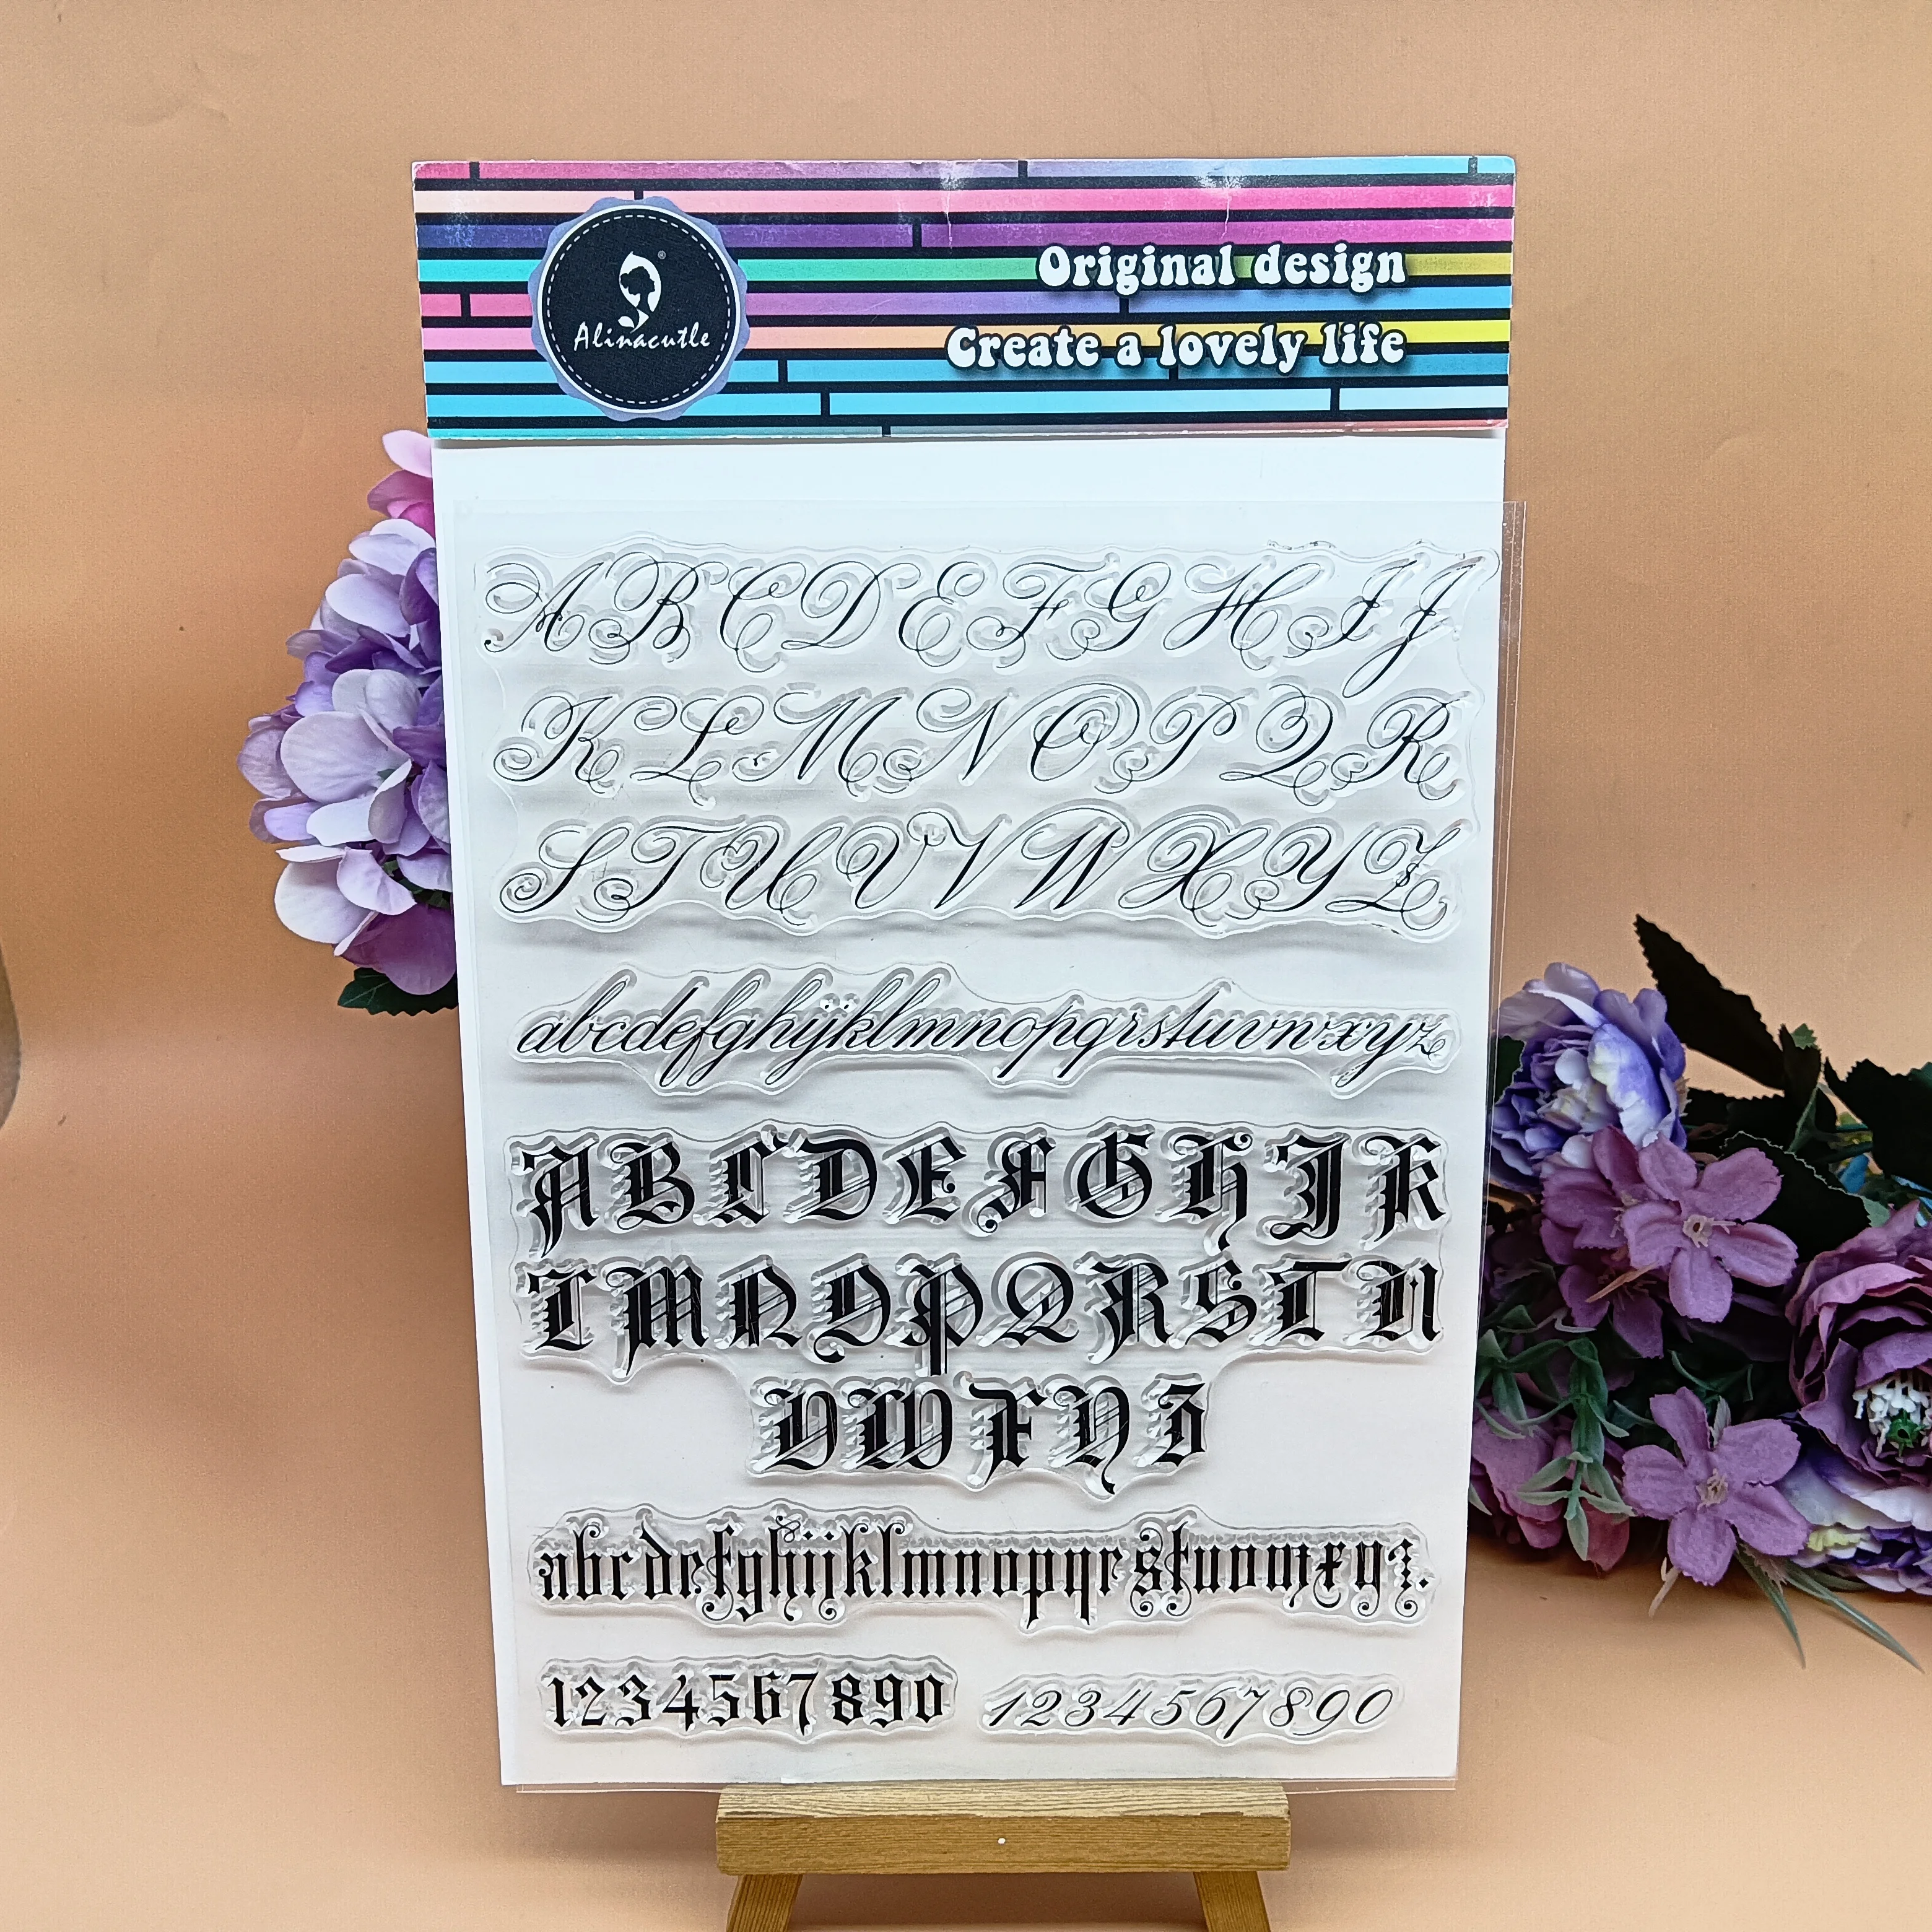 Alinacutle®
Original design
Create a lovely life
A B C D E F G H I J
K L M N O P Q R
S T U V V W X Y Z
abcdefghijklmnopqrstuvwxyz
A B C D E F G H J K
L M N O P Q R S T U
V W X Y Z
abcdefghijklmnopqrstuvwxyz.
1234567890 1234567890